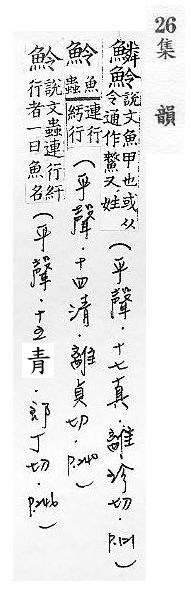 26
集韻
鱗魿 說文魚甲也或从
令通作又姓
(平聲.十七真.離珍切.P.121)
魿 魚連行
蟲紆行
(平聲.十四清.離貞切.P.240)
魿 說文蟲連行紆
行者一曰魚名
(平聲.十五青.郎丁切.P.246)